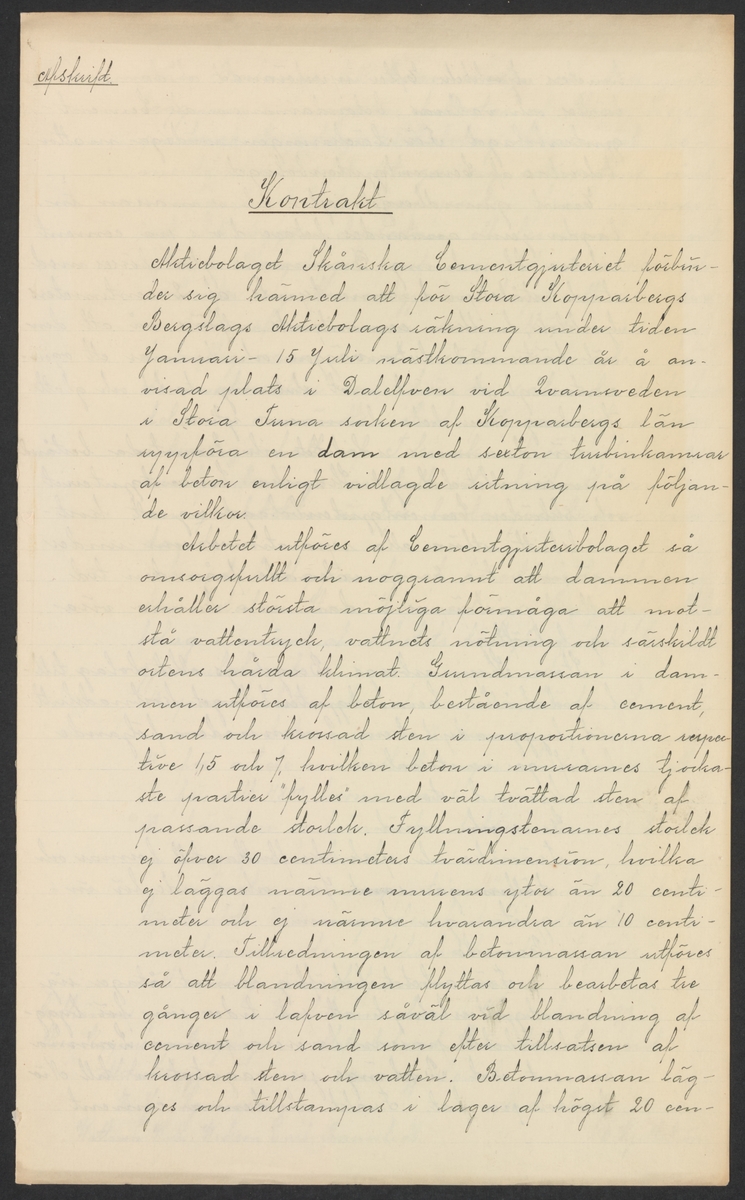 Afskrift.
Kontrakt
Aktiebolaget Skånska Cementgjuteriet förbin-
der sig härmed att för Stora Kopparbergs
Bergslags Aktiebolags räkning under tiden
Januari - 15 Juli nästkommande år å an-
visad plats i Dalelfven vid Qvarnsveden
i Stora Tuna socken af Kopparbergs län
uppföra en dam med sexton turbinkamrar
af beton enligt vidlagde ritning på följan-
de vilkor.
Arbetet utföres af Cementgjuteribolaget så
omsorgsfullt och noggrannt att dammen
erhåller största möjliga förmåga att mot-
stå vattentryck, vattnets nötning och särskildt
ortens hårda klimat. Grundmassan i dam-
men utföres af beton, bestående af cement,
sand och krossad sten i proportionerna respec-
tive 1,5 och 7, hvilken beton i murarnes tjocka-
ste partier "fylles" med väl tvättad sten af
passande storlek. Fyllningstenarnes storlek
ej öfver 30 centimeters tvärdimension, hvilka
ej läggas närmre murens ytor än 20 centi-
meter och ej närmre hvarandra än 10 centi-
meter. Tillredningen af betonmassan utföres
så att blandningen flyttas och bearbetas tre
gånger i lafven såväl vid blandning af
cement och sand som efter tillsatsen af
krossad sten och vatten. Betonmassan läg-
ges och tillstampas i lager af högst 20 cen-